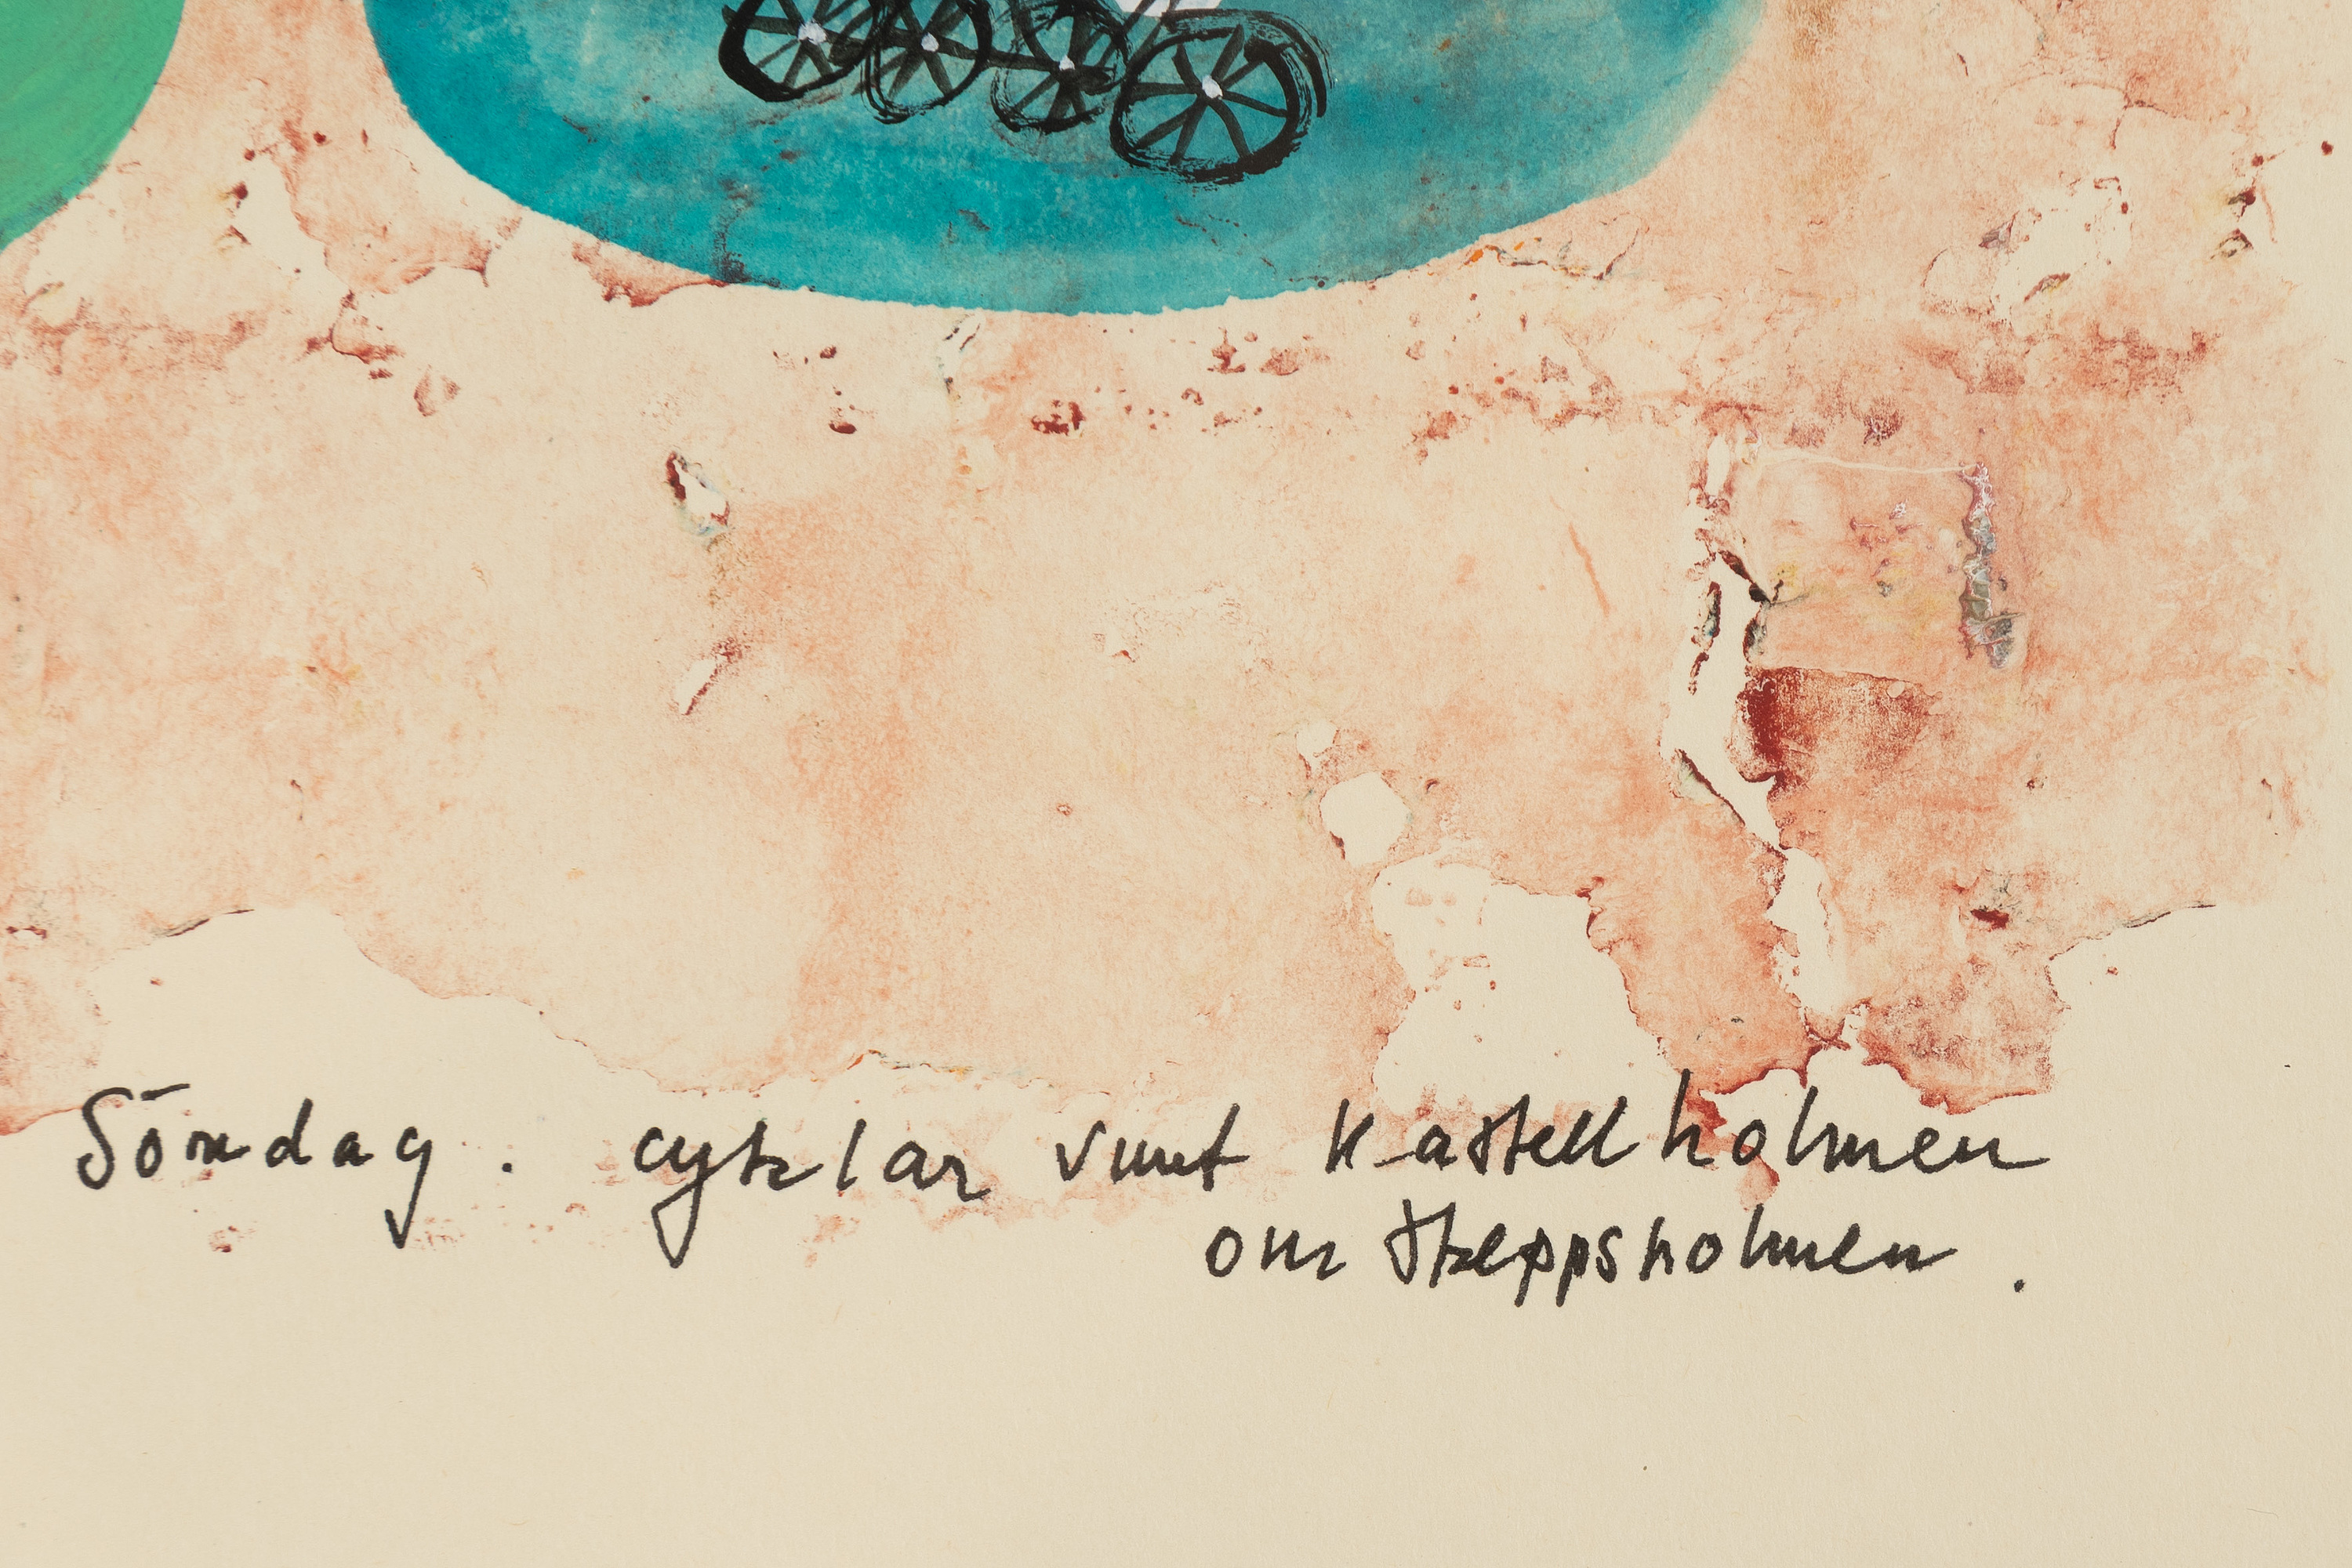 Söndag. cyklar runt Kastellholmen
om Skeppsholmen.